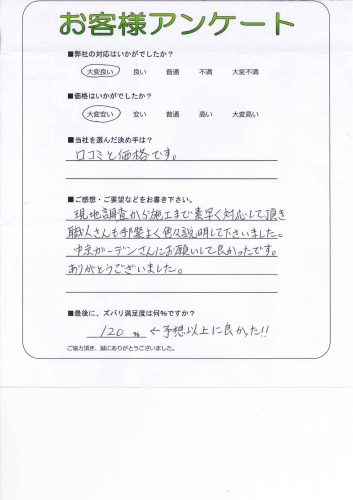 お客様アンケート
■弊社の対応はいかがでしたか?
大変良い 良い 普通 不満 大変不満
■価格はいかがでしたか?
大変安い 安い 普通 高い 大変高い
■当社を選んだ決め手は?
口コミと価格です。
■ご感想・ご要望などをお書き下さい。
現地調査から施工まで素早く対応して頂き
職人さんも手際よく色々説明して下さいました。
中京ガーデンさんにお願いして良かったです。
ありがとうございました。
■最後に、ズバリ満足度は何%ですか?
120 % ←予想以上に良かった!!
ご協力頂き、誠にありがとうございました。